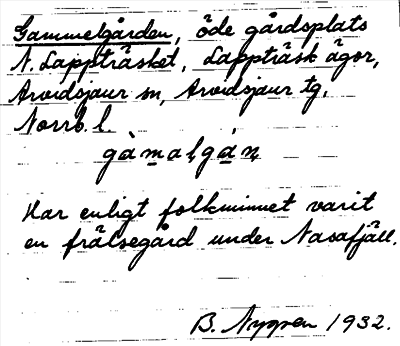 Gammelgården, öde gårdsplats
N. Lappträsket, Lappträsk ägor,
Arvidsjaur sn, Arvidsjaur tg,
Norrb. l.
gàmalgán
Har enligt folkminnet varit
en frälsegård under Nasafjäll.
B. Nygren 1932.